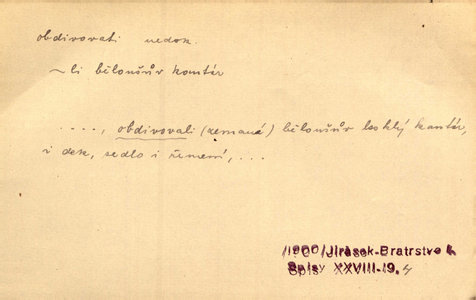 obdivovati nedok.
~li běloušův kantár
...., obdivovali (zemané) běloušův lesklý kantár,
i dek, sedlo i řemení, ...
/1900/Jirásek-Bratrstvo
Spisy XXVIII-19.4